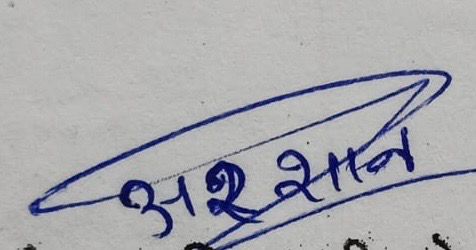 अरशान